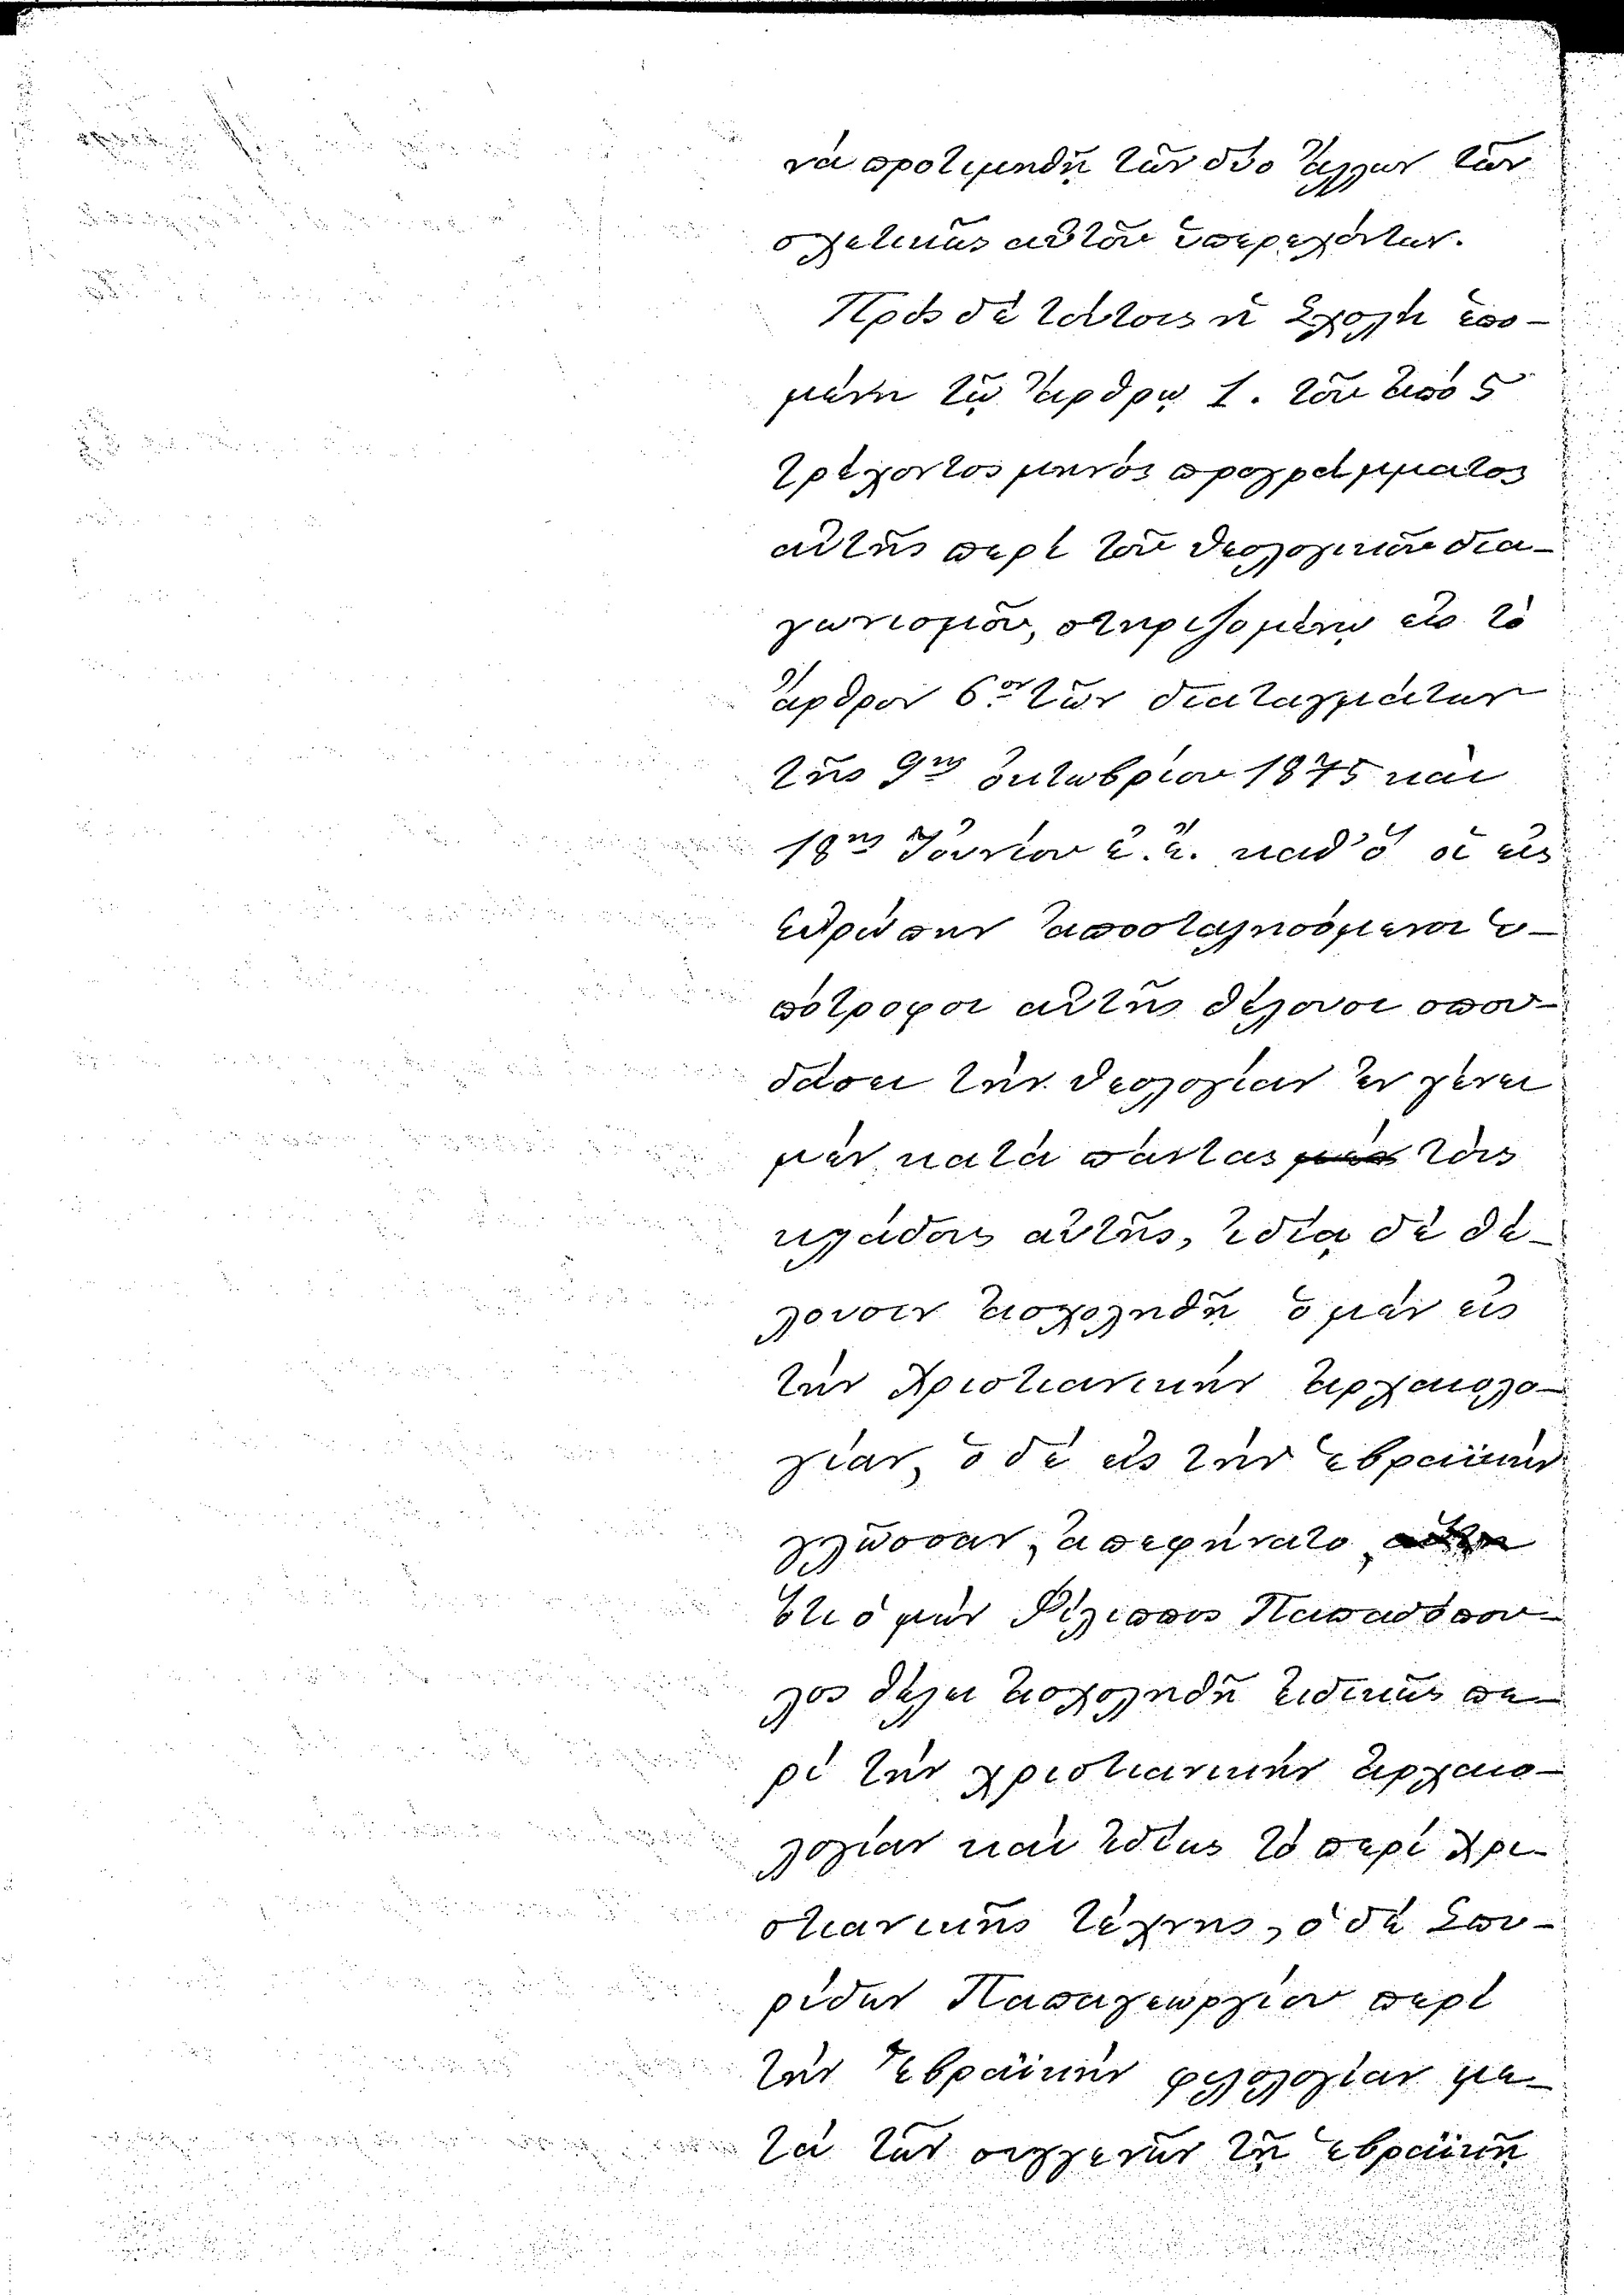 νὰ προτιμηθῇ τῶν δύο ἄλλων τῶν
σχετικῶς αὐτοῦ ὑπερεχόντων.
Πρὸς δὲ τούτοις ἡ Σχολὴ ἑπο-
μένη τῷ ἄρθρῳ 1. τοῦ ἀπὸ 5
τρέχοντος μηνὸς προγράμματος
αὐτῆς περὶ τοῦ θεολογικοῦ δια-
γωνισμοῦ, στηριζομένῳ εἰς τὸ
ἄρθρον 6ον τῶν διαταγμάτων
τῆς 9ης ὀκτωβρίου 1875 καὶ
18ης Ἰουνίου ἐ.ἔ. καθ' ὃ οἱ εἰς
Εὐρώπην ἀποσταλησόμενοι ὑ-
πότροφοι αὐτῆς θέλουσι σπου-
δάσει τὴν θεολογίαν ἐν γένει
μὲν κατὰ πάντας τοὺς
κλάδους αὐτῆς, ἰδίᾳ δὲ θέ-
λουσιν ἀσχοληθῆ ὁ μὲν εἰς
τὴν Χριστιανικὴν ἀρχαιολο-
γίαν, ὁ δὲ εἰς τὴν ἑβραϊκὴν
γλῶσσαν, ἀπεφήνατο,
ὅτι ὁ μὲν Φίλιππος Παπαδόπου-
λος θέλει ἀσχοληθῆ εἰδικῶς πε-
ρὶ τὴν χριστιανικὴν ἀρχαιο-
λογίαν καὶ ἰδίως τὸ περὶ Χρι-
στιανικῆς τέχνης, ὁ δὲ Σπυ-
ρίδων Παπαγεωργίου περὶ
τὴν Ἑβραϊκὴν φιλολογίαν με-
τὰ τῶν συγγενῶν τῇ ἑβραϊκῇ